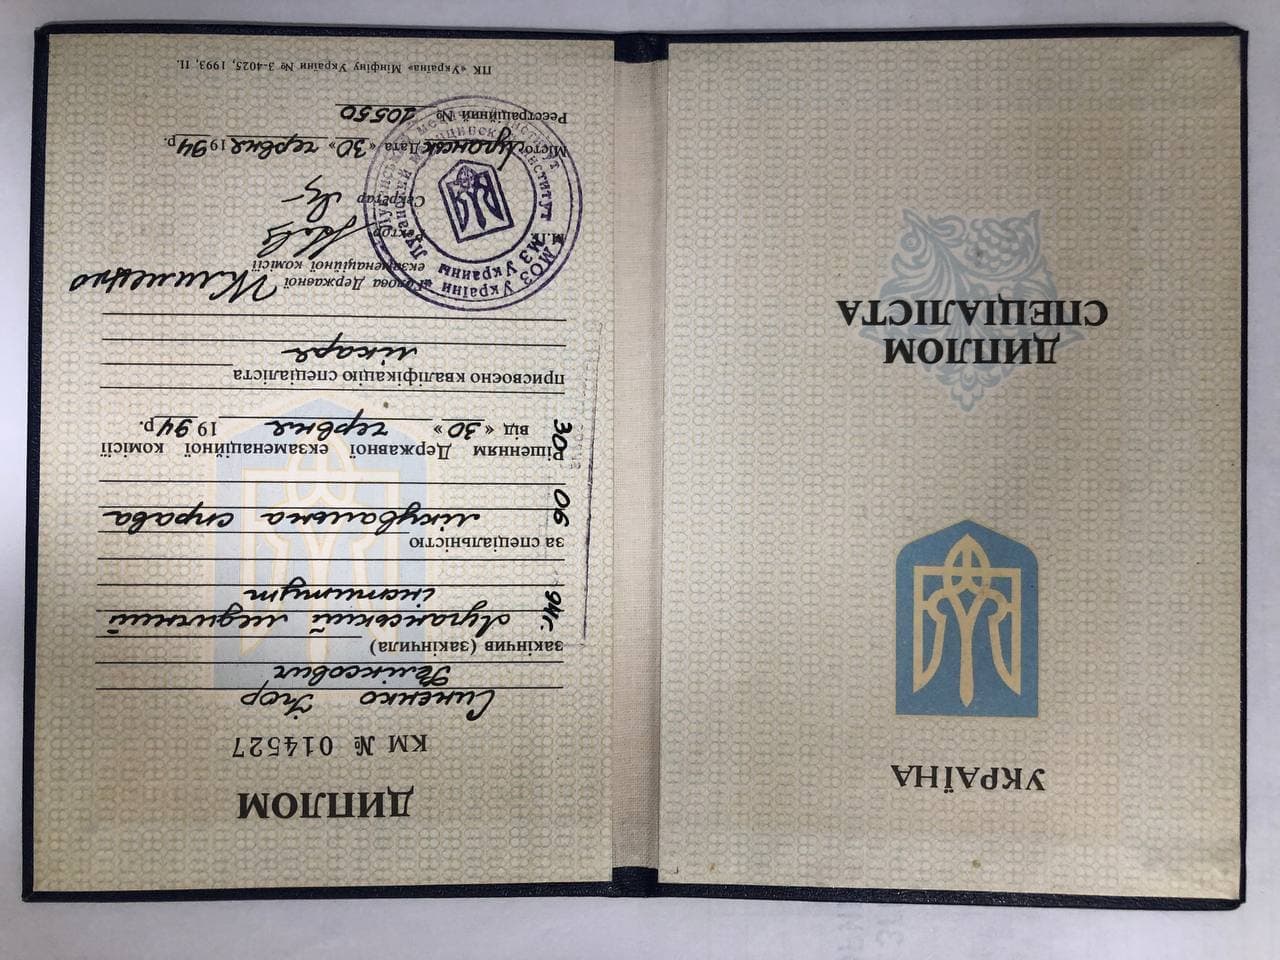 УКРАЇНА
ДИПЛОМ
СПЕЦІАЛІСТА
ДИПЛОМ
КМ № 014527
Синєнко Ігор
Феліксович
закінчив (закінчила)
94г. Луганський медичний
інститут
за спеціальністю
06 лікувальна справа
30 Рішенням Державної екзаменаційної комісії
від «30» червня 1994р.
присвоєно кваліфікацію спеціаліста
лікаря
Голова Державної
екзаменаційної комісії
Клименко
М.П.
Ректор
Секретар
МОЗ України
МЗ Украины
Місто Луганськ Дата «30» червня 1994р.
Реєстраційний № 10550
ПК «Україна» Мінфіну України № 3-4025, 1993, II.